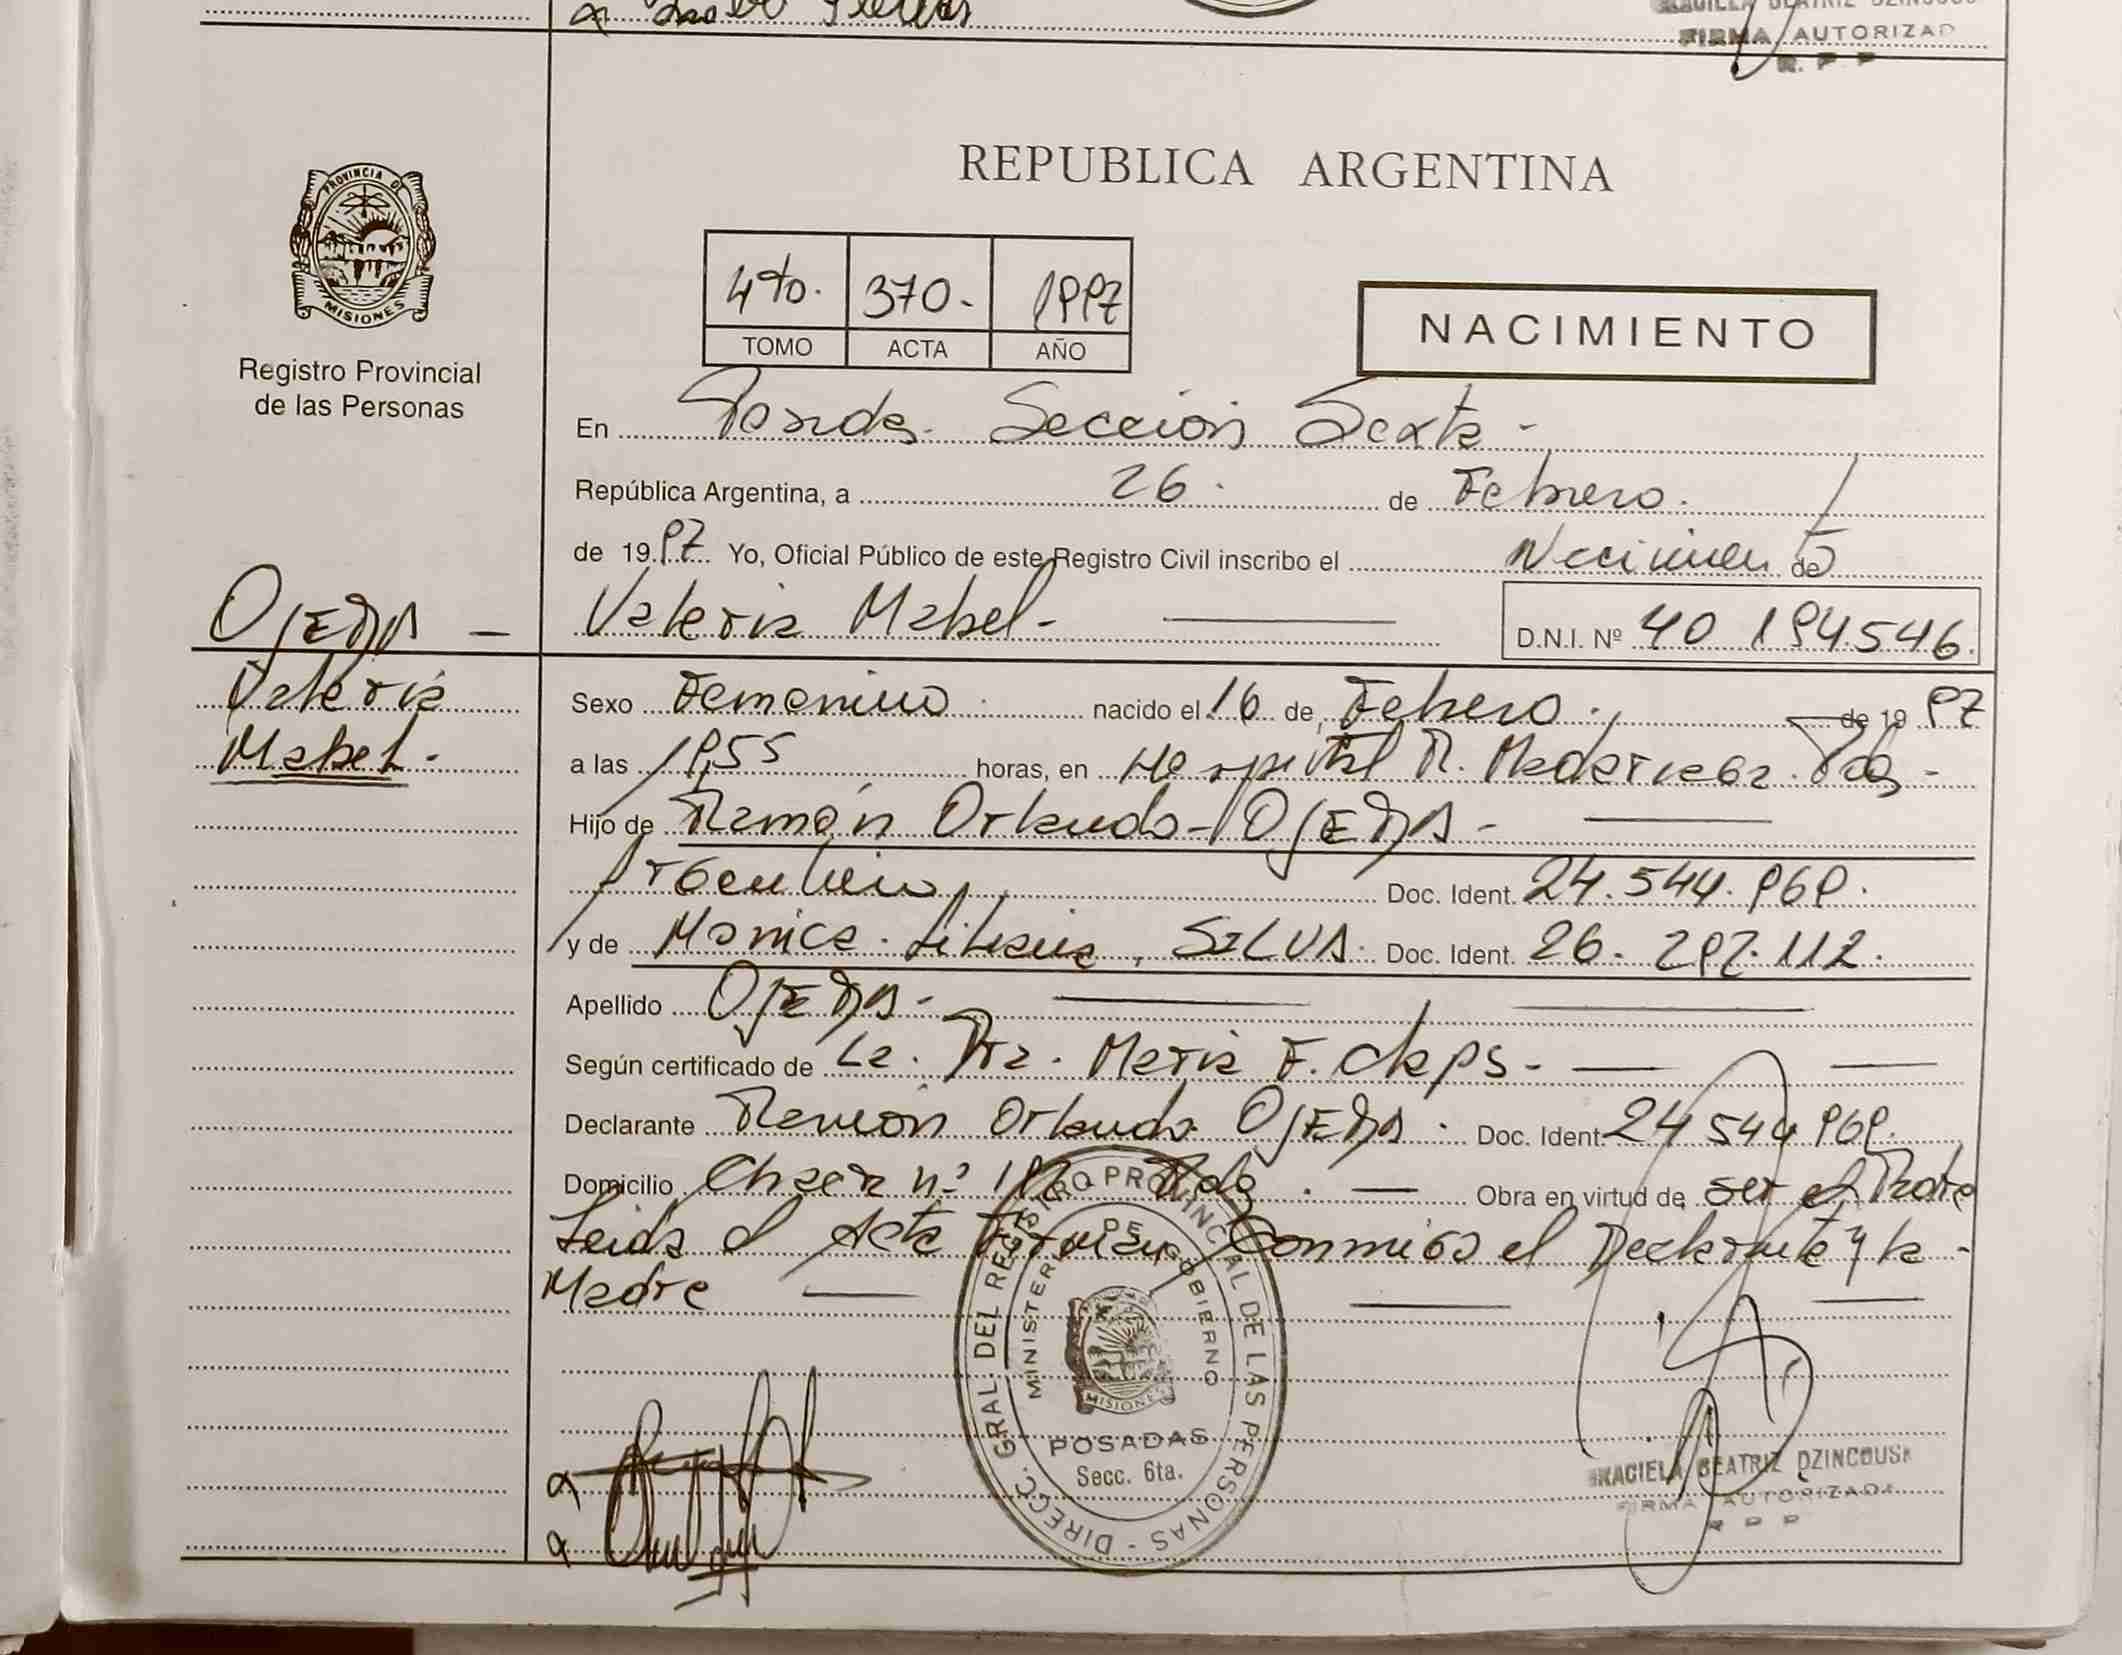 FIRMA AUTORIZAD
R. P P
PROVINCIA DE
MISIONES
Registro Provincial
de las Personas
REPUBLICA ARGENTINA
4to. 370- 1997
TOMO ACTA AÑO
NACIMIENTO
En Posadas Sección Sexta -
República Argentina, a 26. de Febrero.
de 19 97 Yo, Oficial Público de este Registro Civil inscribo el Nacimiento de
OJEDA - Valeria Mabel- D.N.I. Nº 40 194.546.
Valeria
Mabel.-
Sexo Femenino nacido el 16 de Febrero. de 19 97
a las 19,55 horas, en Hospital R. Madariaga. Pdas -
Hijo de Ramón Orlando- OJEDA -
Argentino Doc. Ident. 24.544.969.
y de Monica. Liliana, SILVA. Doc. Ident. 26. 297.112.
Apellido OJEDA.-
Según certificado de La. Dra. Maria F.
Declarante Ramón Orlando OJEDA. Doc. Ident. 24 544 969.
Domicilio Chacra nº Pdas. - Obra en virtud de ser el Padre
Leida el Acta Firman Conmigo el Declarante y la -
Madre
DIRECC. GRAL. DEL REGISTRO PROVINCIAL DE LAS PERSONAS -
MINISTERIO DE GOBIERNO
MISIONES
POSADAS
Secc. 6ta.
GRACIELA BEATRIZ DZINCOUSK
FIRMA AUTORIZADA
R P P